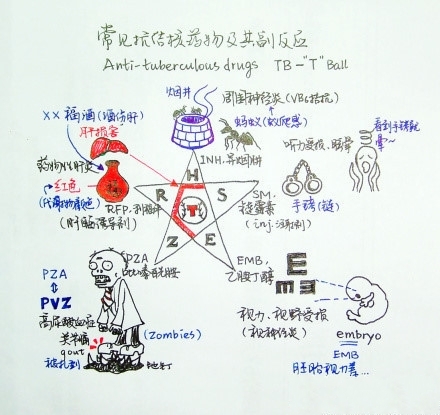 常见抗结核药物及其副反应
Anti-tuberculous drugs TB-"T" Ball
烟井
周围神经炎(VB6拮抗)
XX福酒(酒伤肝)
蚂蚁(蚁爬感)
看到手铐就晕~
肝损害
听力受损、眩晕
药物性肝炎
INH.异烟肼
H
红色
R
S
SM.
手铐(链)
(代谢物颜色)
T
链霉素
RFP.利福平
(inj.注射剂)
(肝酶诱导剂)
Z
E
PZA
EMB.
E
PZA
吡嗪酰胺
乙胺丁醇
PVZ
视力、视野受损
高尿酸血症
(视神经炎)
embryo
关节痛
(Zombies)
EMB
gout
胚胎视力差...
被扎到
地钉